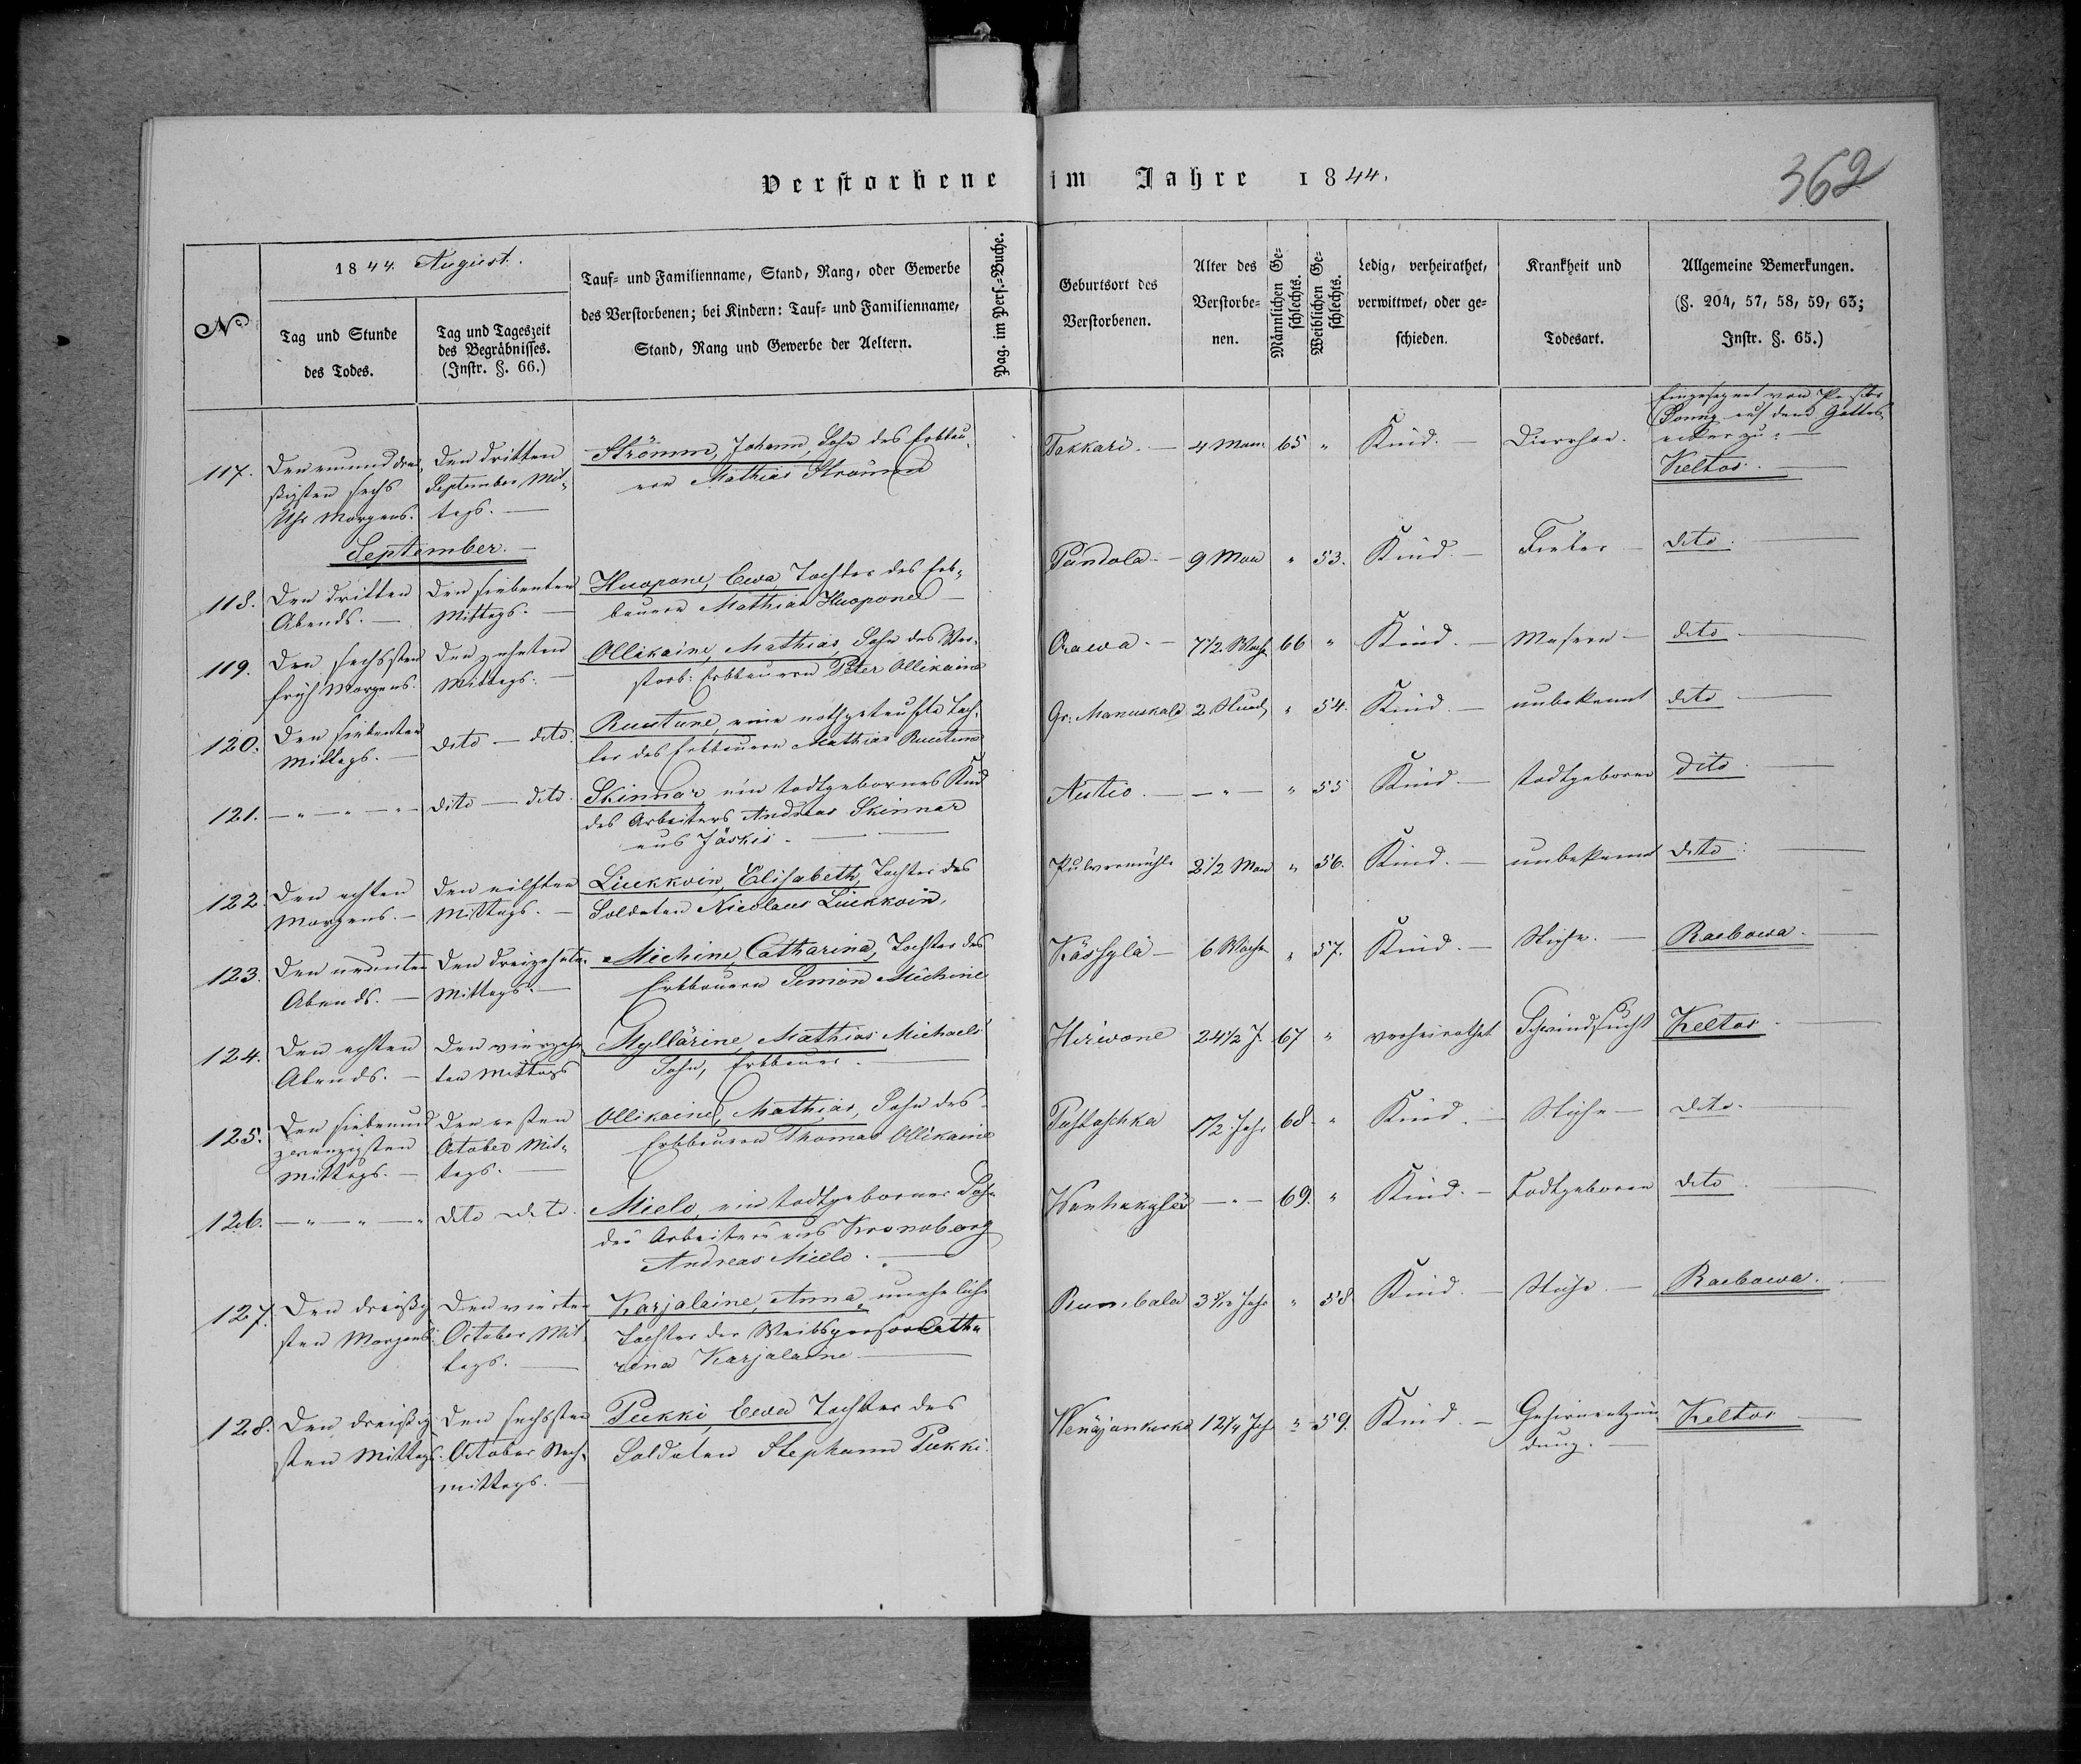 Verstorbene im Jahre 1844.
362
No
1844. August.
Tag und Stunde
des Todes.
Tag und Tageszeit
des Begräbnisses.
(Instr. §. 66.)
Tauf- und Familienname, Stand, Rang, oder Gewerbe
des Verstorbenen; bei Kindern: Tauf- und Familienname,
Stand, Rang und Gewerbe der Aeltern.
Pag. im Pers.-Buche.
Geburtsort des
Verstorbenen.
Alter des
Verstorbe-
nen.
Männlichen Ge-
schlechts.
Weiblichen Ge-
schlechts.
Ledig, verheirathet,
verwittwet, oder ge-
schieden.
Krankheit und
Todesart.
Allgemeine Bemerkungen.
(§. 204, 57, 58, 59, 63;
Instr. §. 65.)
117.
Den einund drei-
ßigsten sechs
Uhr Morgens.
Den dritten
September Mit-
tags. —
Strömm, Johann, Sohn des Erbbau-
ern Mathias Strömm
Takkari. —
4 Mon
65
"
Kind. —
Diarrhoe.
Eingesegnet von Pastor
auf dem Gottes-
acker zu: —
Keltos. —
September. —
118.
Den dritten
Abends. —
Den siebenten
Mittags. —
Huopone, Ewa, Tochter des Erb-
bauern Mathias Huopone —
Puntola —
9 Mon
"
53.
Kind. —
Fieber —
dito. —
119.
Den sechsten
früh Morgens.
Den zehnten
Mittags. —
Ollikaine, Mathias, Sohn des Ver-
storb: Erbbauern Peter Ollikaine
Orawa. —
7 1/2 Woch
66
"
Kind. —
Masern —
dito —
120.
Den siebenten
Mittags. —
dito — dito.
Ruutune, eine nothgetaufte Toch-
ter des Erbbauern Mathias Ruutune
Gr. Manuskala
2 Stund
"
54.
Kind. —
unbekannt
dito —
121.
— " — " — "
dito — dito.
Skinnar, ein todtgebornes Kind
des Arbeiters Andreas Skinnar
aus Jäskis. —
Autio. —
— " —
"
55
Kind —
todtgeboren
dito. —
122.
Den achten
Morgens. —
Den eilften
Mittags. —
Liukkoin, Elisabeth, Tochter des
Soldaten Nicolaus Liukkoin.
Pulvermühle
2 1/2 Mon
"
56.
Kind. —
unbekannt
dito: —
123.
Den neunten
Abends. —
Den dreizehnten
Mittags. —
Michine, Catharina, Tochter des
Erbbauern Simon Michine
6 Woch
"
57.
Kind. —
Raebowa. —
124.
Den achten
Abends. —
Den vierzehn-
ten Mittags
Myllärine, Mathias Michaels
Sohn, Erbbauer. —
Hirwone
24 1/2 J.
67
"
verheirathet
Schwindsucht
Keltos. —
125.
Den siebenund
zwanzigsten
Mittags. —
Den ersten
October Mit-
tags. —
Ollikaine, Mathias, Sohn des
Erbbauern Thomas Ollikaine
1/2 Jahr
68
"
Kind. —
dito. —
126.
— " — " — "
dito dito.
Mielo, ein todtgeborner Sohn
des Arbeiters aus Kronoborg
Andreas Mielo. —
Wanhakylä
— " —
69.
"
Kind. —
Todtgeboren
dito —
127.
Den dreißig-
sten Morgens
Den vierten
October Mit-
tags. —
Karjalaine, Anna, uneheliche
Tochter der Weibsperson Catha-
rina Karjalaine —
Rumbala
Jahr
"
58
Kind. —
Raebowa. —
128.
Den dreißig-
sten Mittags.
Den sechsten
October Nach-
mittags. —
Pukki, Ewa Tochter des
Soldaten Stephann Pukki.
12 1/4 Jahr
"
59.
Kind. —
Gehirnentzün-
dung. —
Keltos —